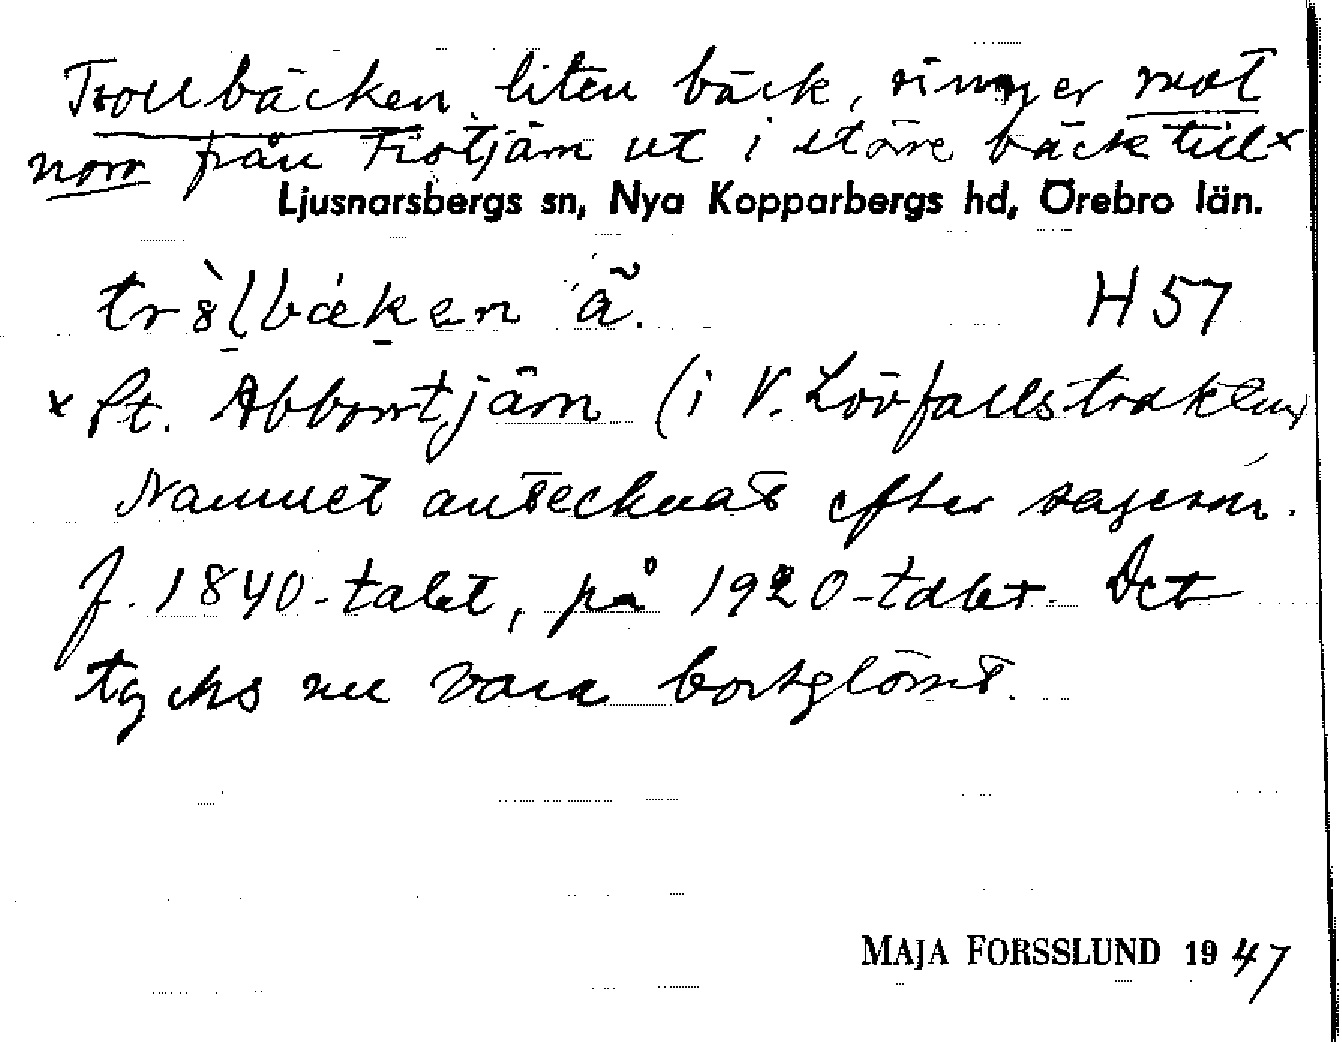 Trollbäcken, liten bäck, rinner mot
norr från Fistjärn ut i större bäck till x
Ljusnarsbergs sn, Nya Kopparbergs hd, Örebro län.
H 57
x St. Abborrtjärn (i V. Lövfallstrakten)
Namnet antecknat efter sagesm.
f. 1840-talet, på 1920-talet. Det
tycks nu vara bortglömt.
MAJA FORSSLUND 1947